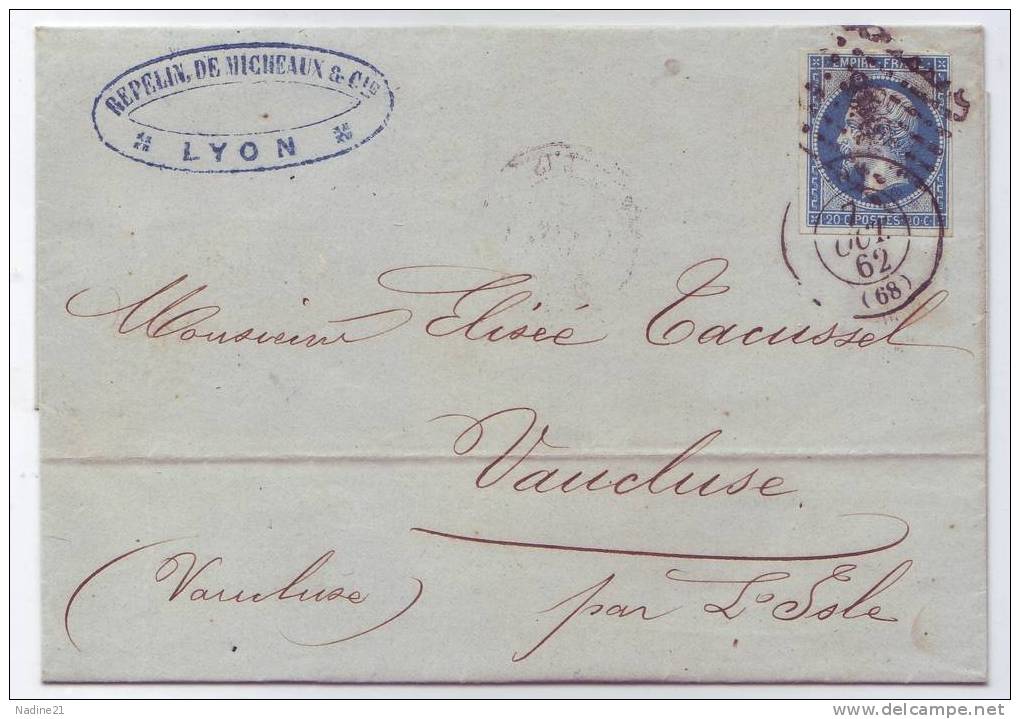 REPELIN, DE MICHEAUX & CIE
LYON
EMPIRE FRANC
20 C POSTES 20 C
7
OCT.
62
(68)
Monsieur Elisée Tacussel
Vaucluse
(Vaucluse) par L'Isle
Nadine21
www.delcampe.net